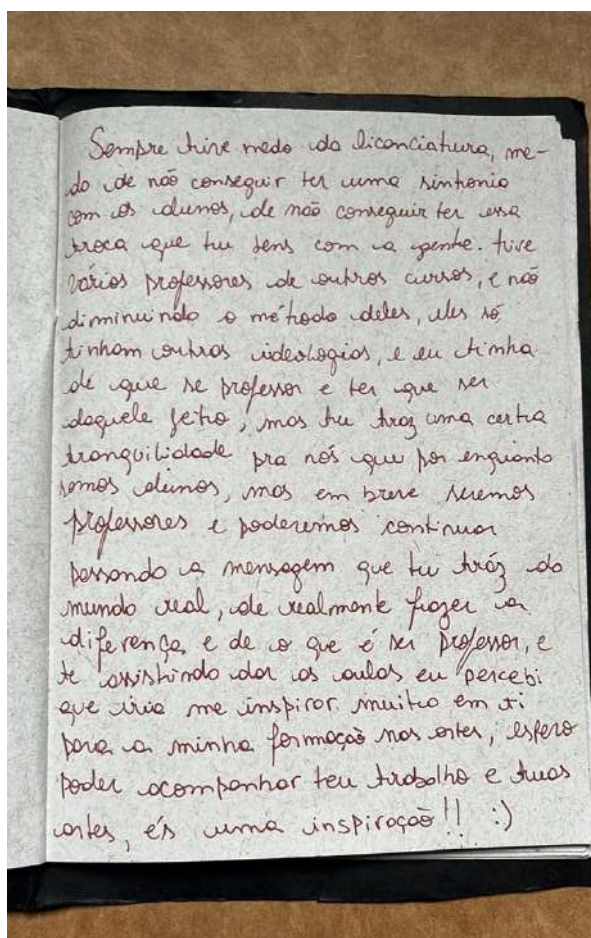 Sempre tive medo da licenciatura, me-
do de não conseguir ter uma sintonia
com os alunos, de não conseguir ter essa
troca que tu tens com a gente. tive
vários professores de outros cursos, e não
diminuindo o método deles, eles só
tinham outras ideologias, e eu tinha
de que se professor e ter que ser
daquele jeito, mas tu traz uma certa
tranquilidade pra nós que por enquanto
somos alunos, mas em breve seremos
professores e poderemos continuar
passando a mensagem que tu tráz do
mundo real, de realmente fazer a
diferença e de o que é ser professor, e
te assistindo dar as aulas eu percebi
que iria me inspirar muito em ti
para a minha formação nas artes, espero
poder acompanhar teu trabalho e tuas
artes, és uma inspiração!! :)